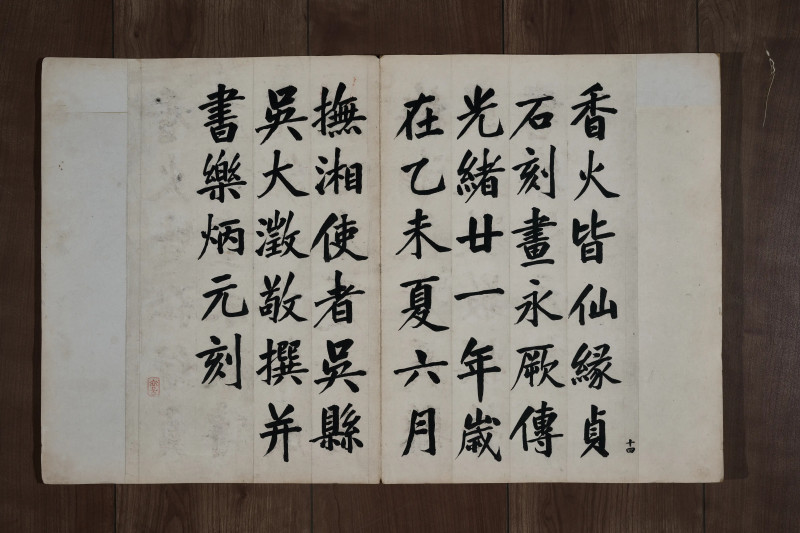 香火皆仙緣貞
石刻畫永厥傳
光緒廿一年歲
在乙未夏六月
撫湘使者吳縣
吳大澂敬撰并
書樂炳元刻
十四